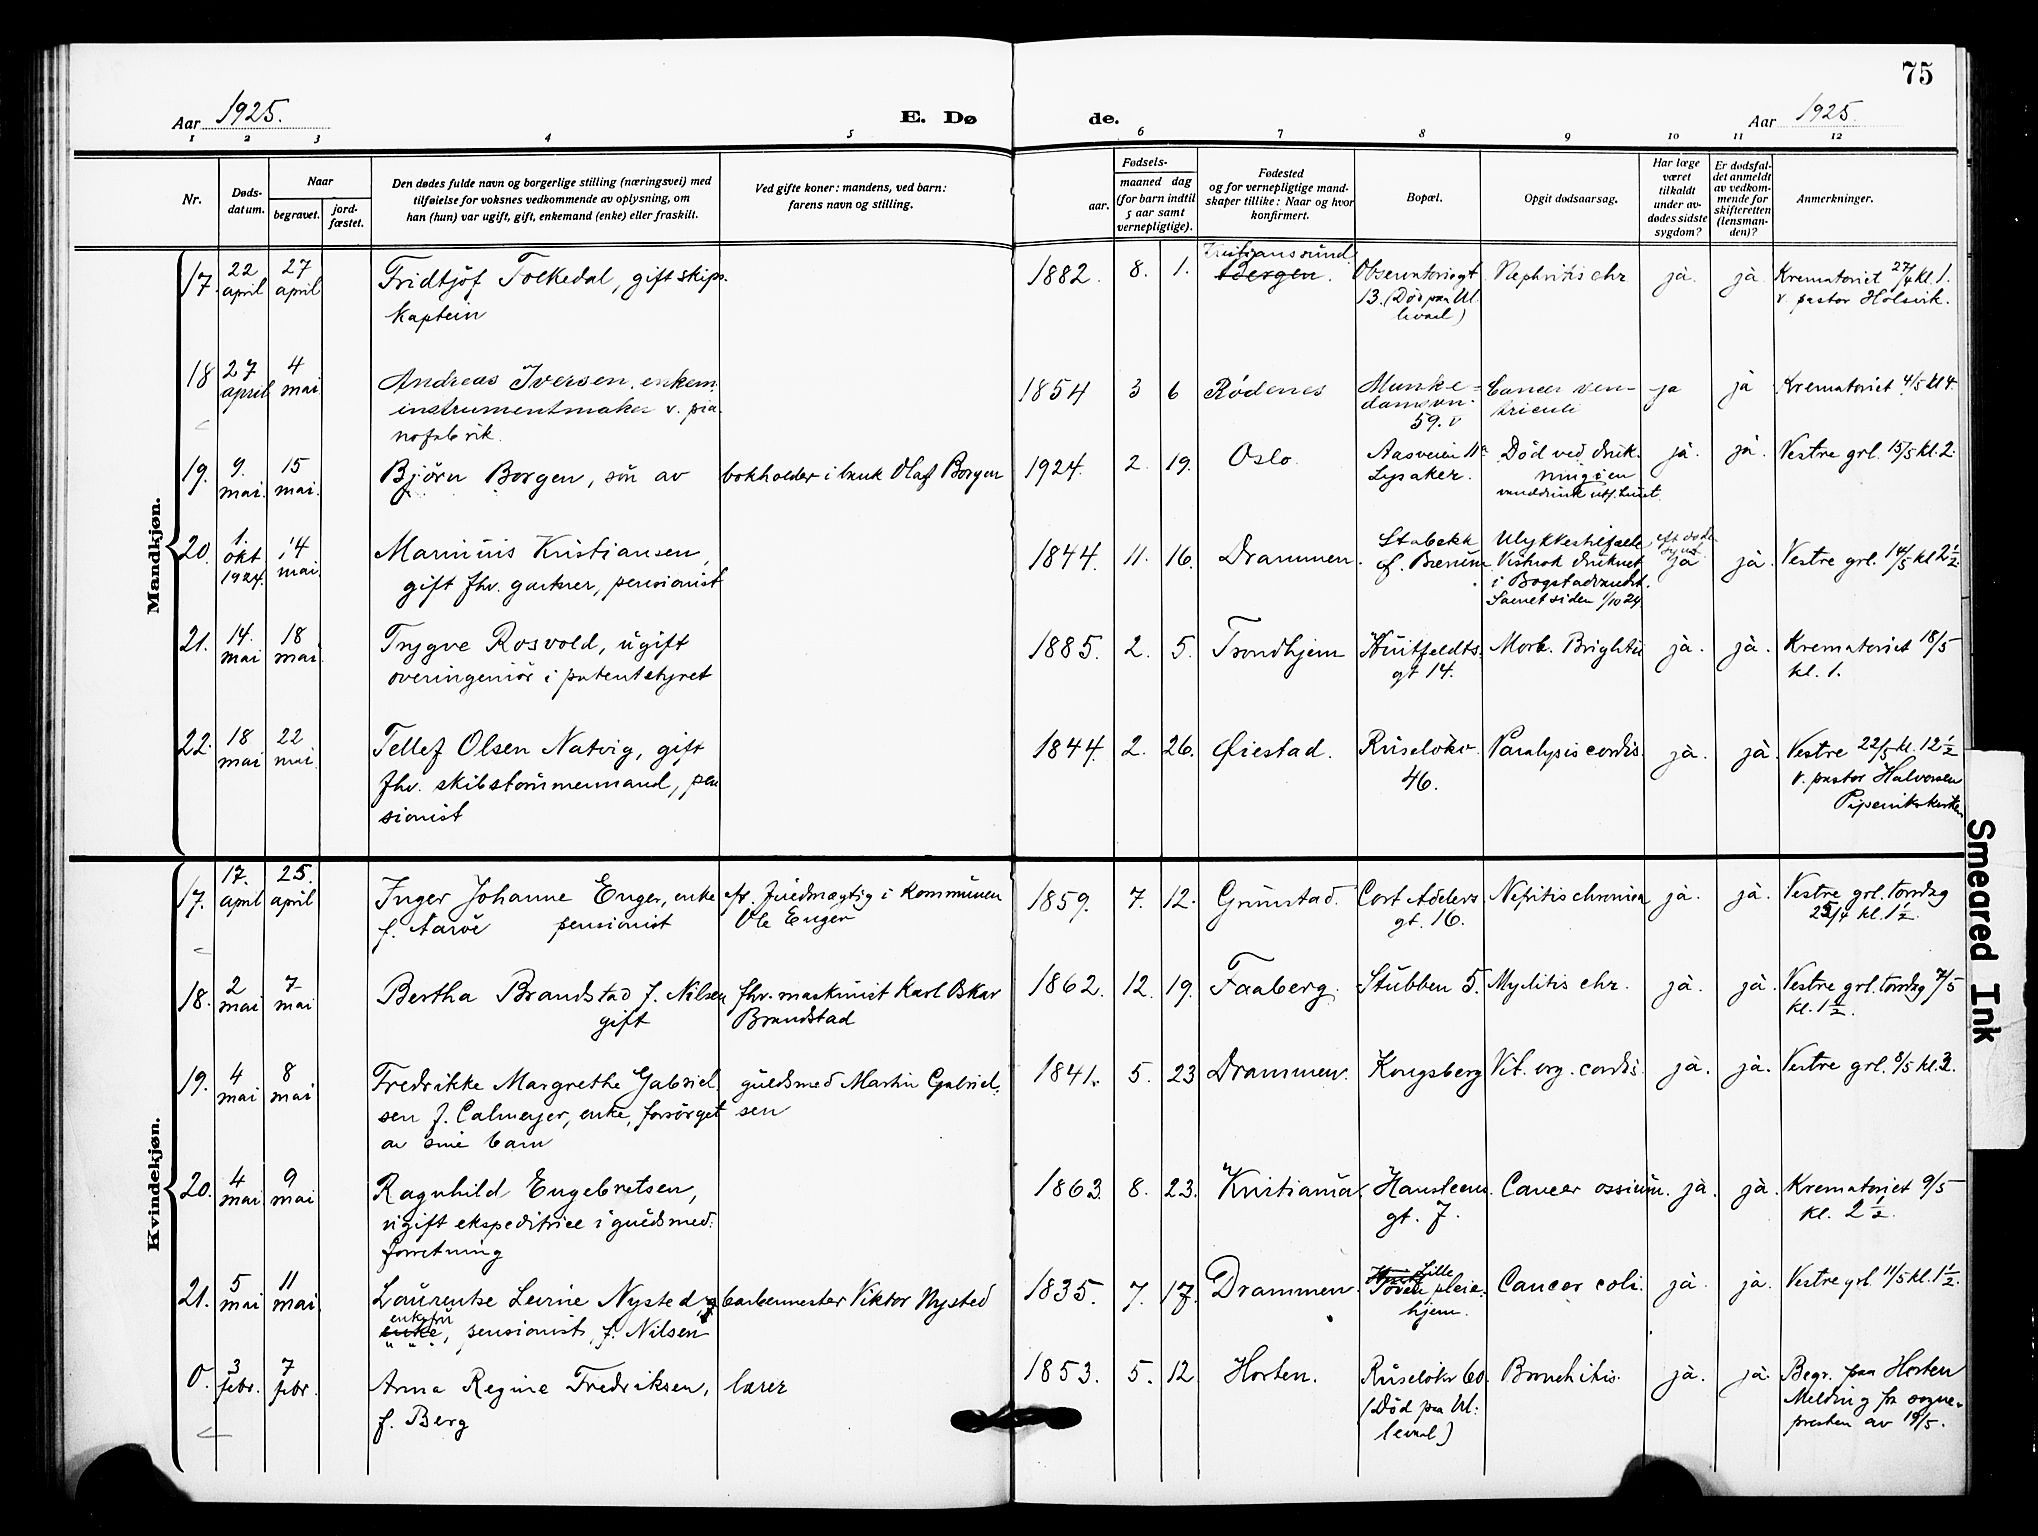 75
Aar 1925.
E. Dø
de.
Aar 1925.
1 2 3 4 5 6 7 8 9 10 11 12
Nr.
Døds-
datum.
Naar
begravet.
jord-
fæstet.
Den dødes fulde navn og borgerlige stilling (næringsvei) med
tilføielse for voksnes vedkommende av oplysning, om
han (hun) var ugift, gift, enkemand (enke) eller fraskilt.
Ved gifte koner: mandens, ved barn:
farens navn og stilling.
Fødsels-
aar.
maaned dag
(for barn indtil
5 aar samt
vernepligtige).
Fødested
og for vernepligtige mand-
skaper tillike: Naar og hvor
konfirmert.
Bopæl.
Opgit dødsaarsag.
Har læge
været
tilkaldt
under av-
dødes sidste
sygdom?
Er dødsfal-
det anmeldt
av vedkom-
mende for
skifteretten
(lensman-
den)?
Anmerkninger.
Mandkjøn.
17. 22 april 27 april Fridtjof Folkedal, gift skips-
kaptein
1882. 8. 1. Kristianssund Bergen. Observatoriegt
13. (Død paa Ul
levaal)
Nephritis chr ja. ja. Krematoriet 27/4 kl. 1.
v. pastor Holsvik.
18 27 april 4 mai Andreas Iversen, enkem.
instrumentmaker v. pia
nofabrik.
1854 3 6 Rødenes Munke-
damsvn.
59. v
Cancer ven-
triculi
ja ja Krematoriet 4/5 kl 4.
19. 9. mai. 15 mai. Bjørn Borgen, søn av bokholder i bank Olaf Borgen
1924. 2. 19. Oslo. Aasveien 11a
Lysaker.
Død ved druk-
ning i en
vanddunk utf. huset.
ja. ja. Vestre grl. 15/5 kl. 2.
20. 1. okt 1924. 14 mai. Marinius Kristiansen,
gift fhv. gartner, pensionist
1844. 11. 16. Drammen. Stabekk
f. Bærum.
Ulykkestilfælde
Vistnok druknet
i Bogstadvandet.
Savnet siden 1/10 24.
ja ja. Vestre grl. 14/5 kl 2 1/2.
21. 14. mai 18 mai. Trygve Rosvold, ugift
overingeniør i patentstyret
1885. 2. 5. Trondhjem Huitfeldts-
gt 14.
Morb. Brightii ja. ja. Krematoriet 18/5
kl. 1.
22. 18 mai 22 mai. Tellef Olsen Natvig, gift
fhv. skibstømmermand, pen
sionist
1844. 2. 26. Øiestad. Ruseløkv.
46.
Paralysis cordis. ja. ja. Vestre 22/5 kl. 12 1/2
v. pastor Halvorsen
Piperviks kirken
Kvindekjøn.
17. 17. april 25. april Inger Johanne Enger, enke
f. Aarøe pensionist
ef. fuldmægtig i kommunen
Ole Enger
1859. 7. 12. Grimstad. Cort Adelers
gt. 16.
Nefritis chronica ja. ja. Vestre grl. torsdag
25/4 kl. 1 1/2.
18. 2 mai 7 mai Bertha Brandstad f. Nilsen
gift
fhv. maskinist Karl Oskar
Brandstad
1862. 12. 19. Faaberg. Stubben 5. Myelitis chr. ja. ja. Vestre grl. torsdag 7/5
kl. 1 1/2.
19. 4 mai 8 mai Fredrikke Margrethe Gabriel
sen f. Calmeyer, enke, forsørget
av sine barn
guldsmed Martin Gabriel-
sen
1841. 5. 23 Drammen. Kongsberg Vit. org. cordis. ja. ja. Vestre grl. 8/5 kl. 3.
20. 4 mai 9 mai Ragnhild Engebretsen,
ugift ekspeditrice i guldsmed-
forretning
1863. 8. 23. Kristiania. Hansteens
gt. 7.
Cancer ossium. ja. ja. Krematoriet 9/5
kl. 2 1/2.
21. 5 mai 11 mai. Laurentse Levine Nysted
enkefru enke, pensionist, f. Nilsen
barbermester Viktor Nysted
1835. 7. 17. Drammen. Lille
Tøyen pleie-
hjem.
Cancer coli. ja. ja. Vestre grl. 11/5 kl. 1 1/2.
0. 3 febr. 7 febr. Anna Regine Fredriksen,
f. Berg
lærer
1853. 5. 12 Horten. Ruseløkv 60.
(Død paa Ul-
levaal)
Bronchitis. ja. ja. Begr. paa Horten
Melding fra sogne-
presten av 19/5.
Smeared Ink